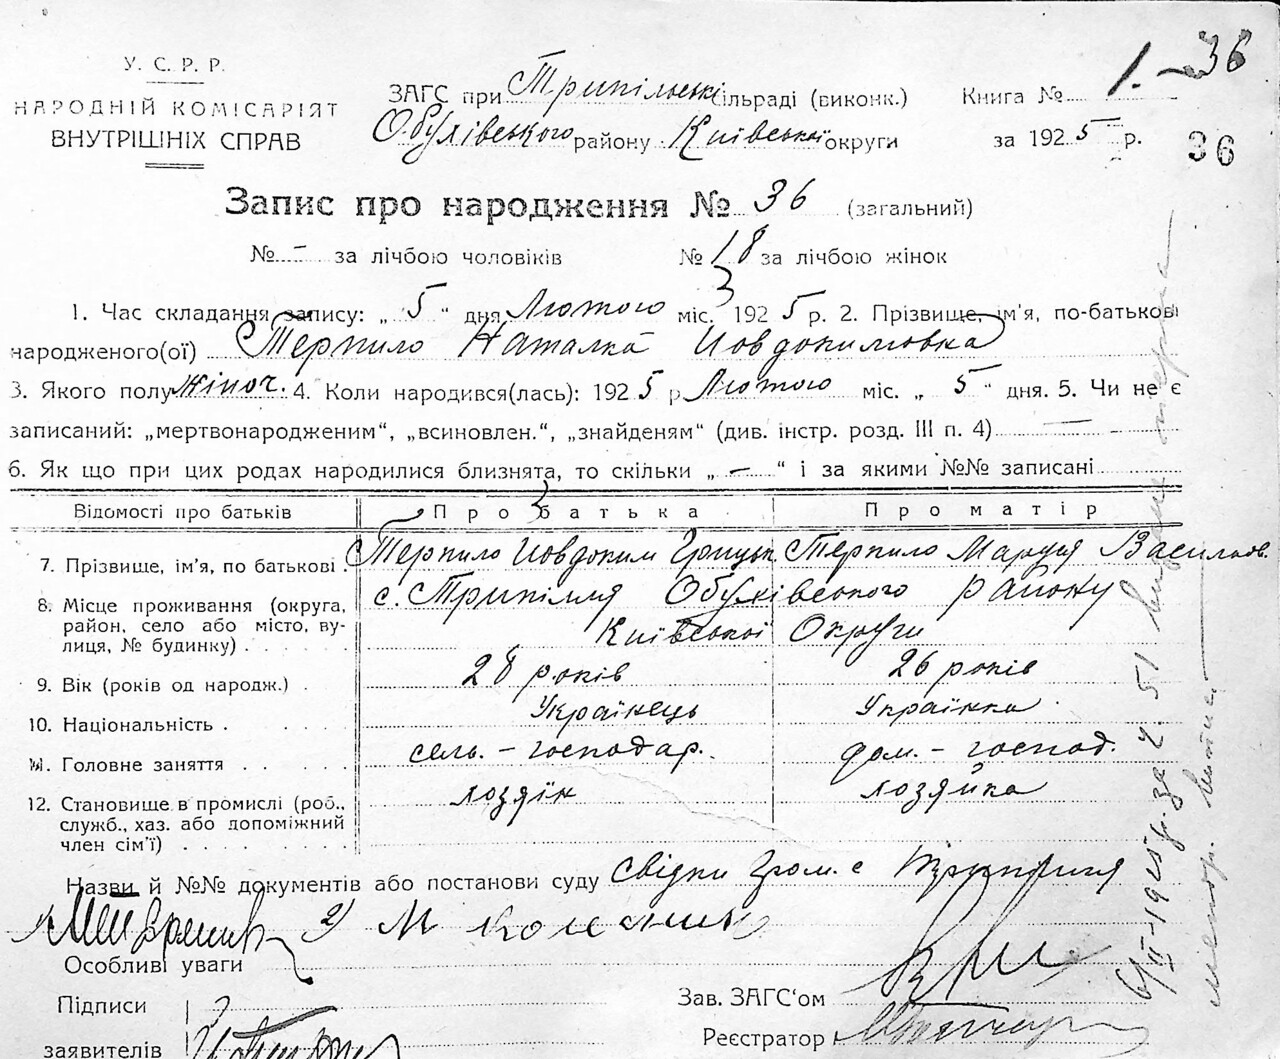 1.-36
У. С. Р. Р.
НАРОДНІЙ КОМІСАРІЯТ
ВНУТРІШНІХ СПРАВ
ЗАГС при Трипільські сільраді (виконк.) Книга №
Обухівського району Київської округи за 1925 р. 36
Запис про народження № 36 (загальний)
№ - за лічбою чоловіків № 18 за лічбою жінок
1. Час складання запису: „ 5 “ дня Лютого міс. 1925 р. 2. Прізвище, ім'я, по-батькові
народженого(ої) Терпило Наталка Йовдокимовка
3. Якого полу жіноч. 4. Коли народився(лась): 1925 р. Лютого міс. „ 5 “ дня. 5. Чи не є
записаний: „мертвонародженим“, „всиновлен.“, „знайденям“ (див. інстр. розд. III п. 4) —
6. Як що при цих родах народилися близнята, то скільки „ — “ і за якими №№ записані
Відомості про батьків Про батька Про матір
7. Прізвище, ім'я, по батькові Терпило Йовдоким Грицьк. Терпило Маруся Васильов.
8. Місце проживання (округа, район, село або місто, вулиця, № будинку) с. Трипілля Обухівського району
Київської Округи
9. Вік (років од народж.) 28 років 26 років
10. Національність Українець Українка
11. Головне заняття сель. - господар. дом. - господ.
12. Становище в промислі (роб., служб., хаз. або допоміжний член сім'ї) хозяїн хозяйка
Назви й №№ документів або постанови суду свідки гром. с Трипілля
2) М
Особливі уваги
Підписи
заявителів
Зав. ЗАГС'ом
Реєстратор
6/II-1925 р. за ч. 51